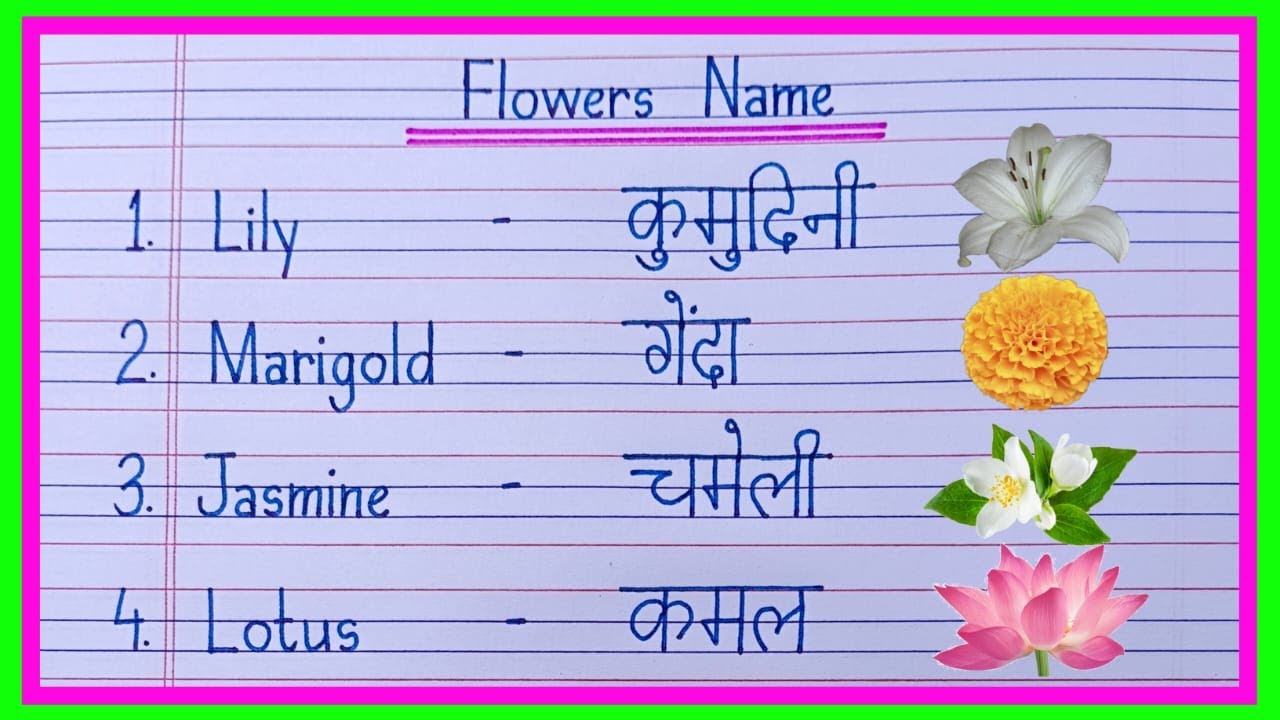 Flowers Name
1. Lily - कुमुदिनी
2. Marigold - गेंदा
3. Jasmine - चमेली
4. Lotus - कमल